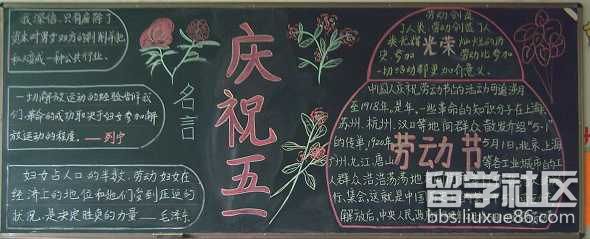 我深信,只有废除了
资本对男女双方的剥削并把
私人变成一种公共行业.
一切解放运动的经验告诉我
们,革命的成功取决于妇女参加解
放运动的程度. ——列宁
妇女占人口的半数,劳动妇女在
经济上的地位和他们受到压迫的
状况,是决定胜负的力量——毛泽东
名言
庆祝五一
劳动创造
了人类,劳动创造了人
类光辉 光荣 灿烂的历
史.参加 劳动比参加
一切活动都更加有意义.
中国人庆祝劳动节的活动可追溯
至1918年,是年,一些革命的知识分子在上海、
苏州、杭州、汉口等地向群众散发介绍"5-1"
的传单.1920年 劳动节 5月1日,北京、上海
广州,九江,唐山 等各工业城市的工
人群众浩浩荡荡地
行、集会,这就是中国
解放后,中央人民政
留学社区
bbs.liuxue86.com